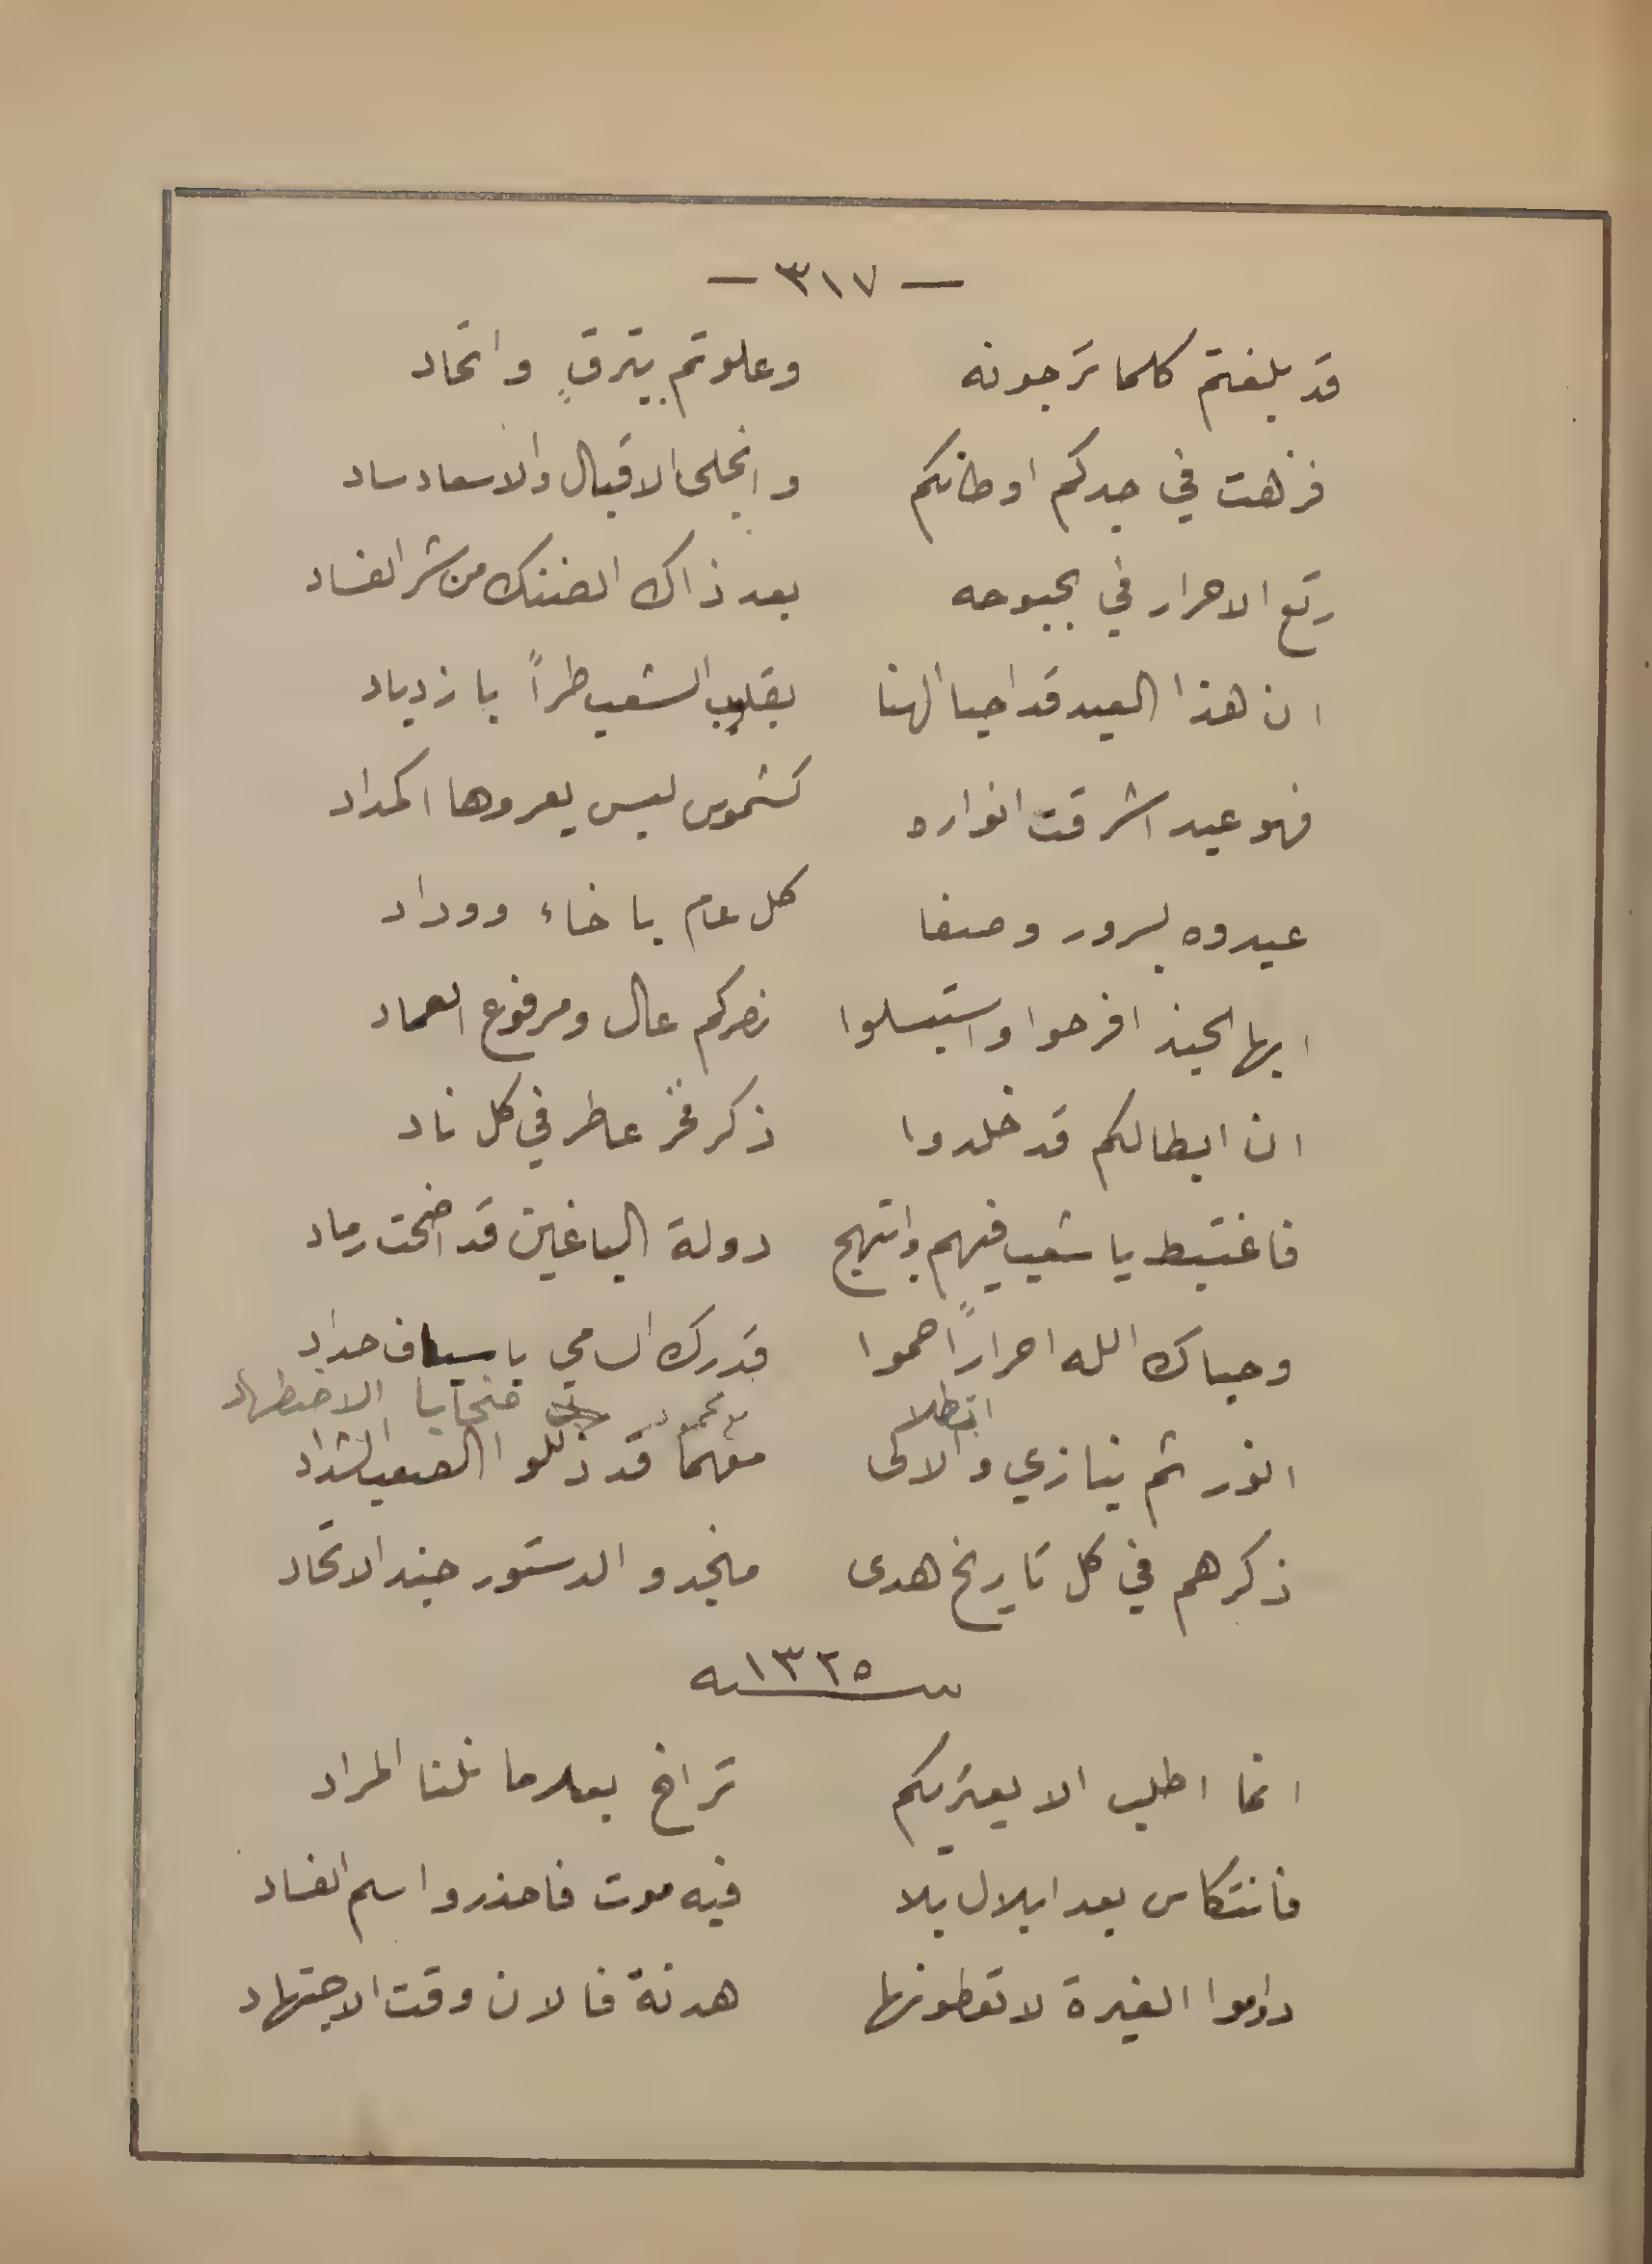 — ٣١٧ —
قد بلغتم كلما ترجونه وعلوتم بترقٍ واتحاد
فزهت في جيدكم اوطانكم وانجلى الاقبال والاسعاد ساد
رتع الاحرار في بحبوحه بعد ذاك الضنك من شر الفساد
ان هذا العيد قد احيا الهنا بقلوب الشعب طراً بازدياد
فهو عيد اشرقت انواره كشموس ليس يعروها اكمداد
عيدوه بسرور وصفا كل عام باخاء ووداد
ايها الجند افرحوا واستبسلوا نصركم عال ومرفوع العماد
ان ابطالكم قد خلدوا ذكر فخرٍ عاطر في كل ناد
فاغتبط يا شعب فيهم وابتهج دولة الباغين قد اضحت رماد
وحباك الله احراراً حموا قدرك السامي باسياف حداد
ضحايا الاضطهاد
انور ثم نيازي والالى معهما قد ذللوا الصعب الشداد
ذكرهم في كل تاريخ هدى منجدو الدستور جند الاتحاد
سنة ١٣٢٥
انما اطلب الا يعتريكم تراخ بعد ما نلنا المراد
فانتكاس بعد ابلال بلا فيه موت فاحذروا سم الفساد
داوموا الغيرة لا تعطونها هدنة فالان وقت الاجتهاد